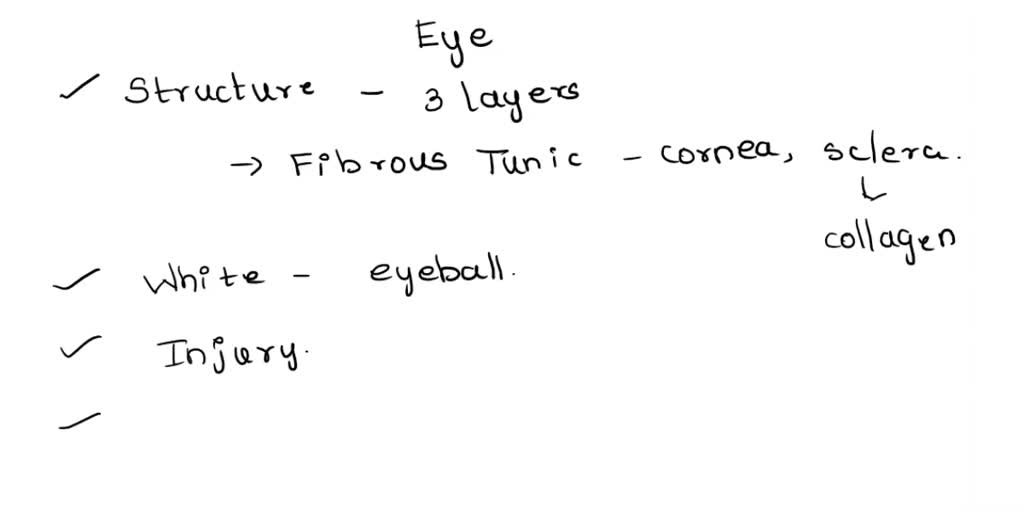 Eye
✓ Structure - 3 layers
→ Fibrous Tunic - cornea, sclera.
↳ collagen
✓ White - eyeball.
✓ Injury.
✓